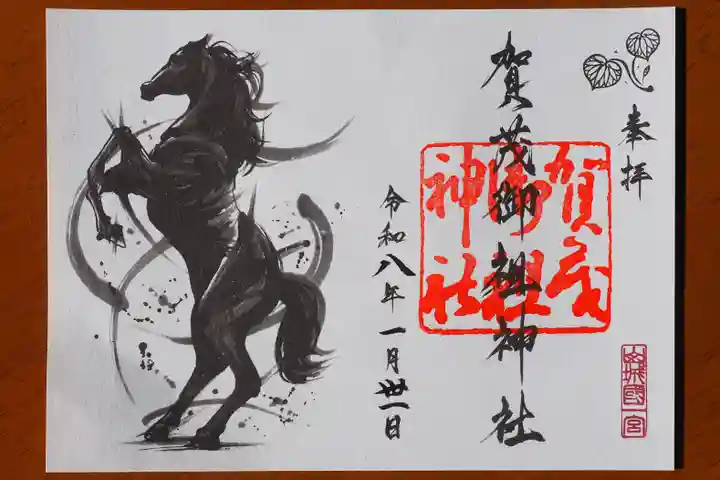 奉拝
山城國一宮
賀茂御祖神社
賀茂
御祖
神社
令和八年一月卅一日